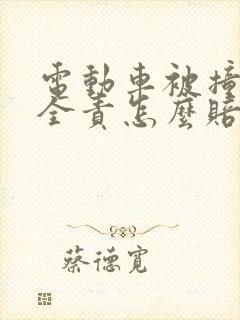 電動車被撞
全責怎麼賠
蔡德寬